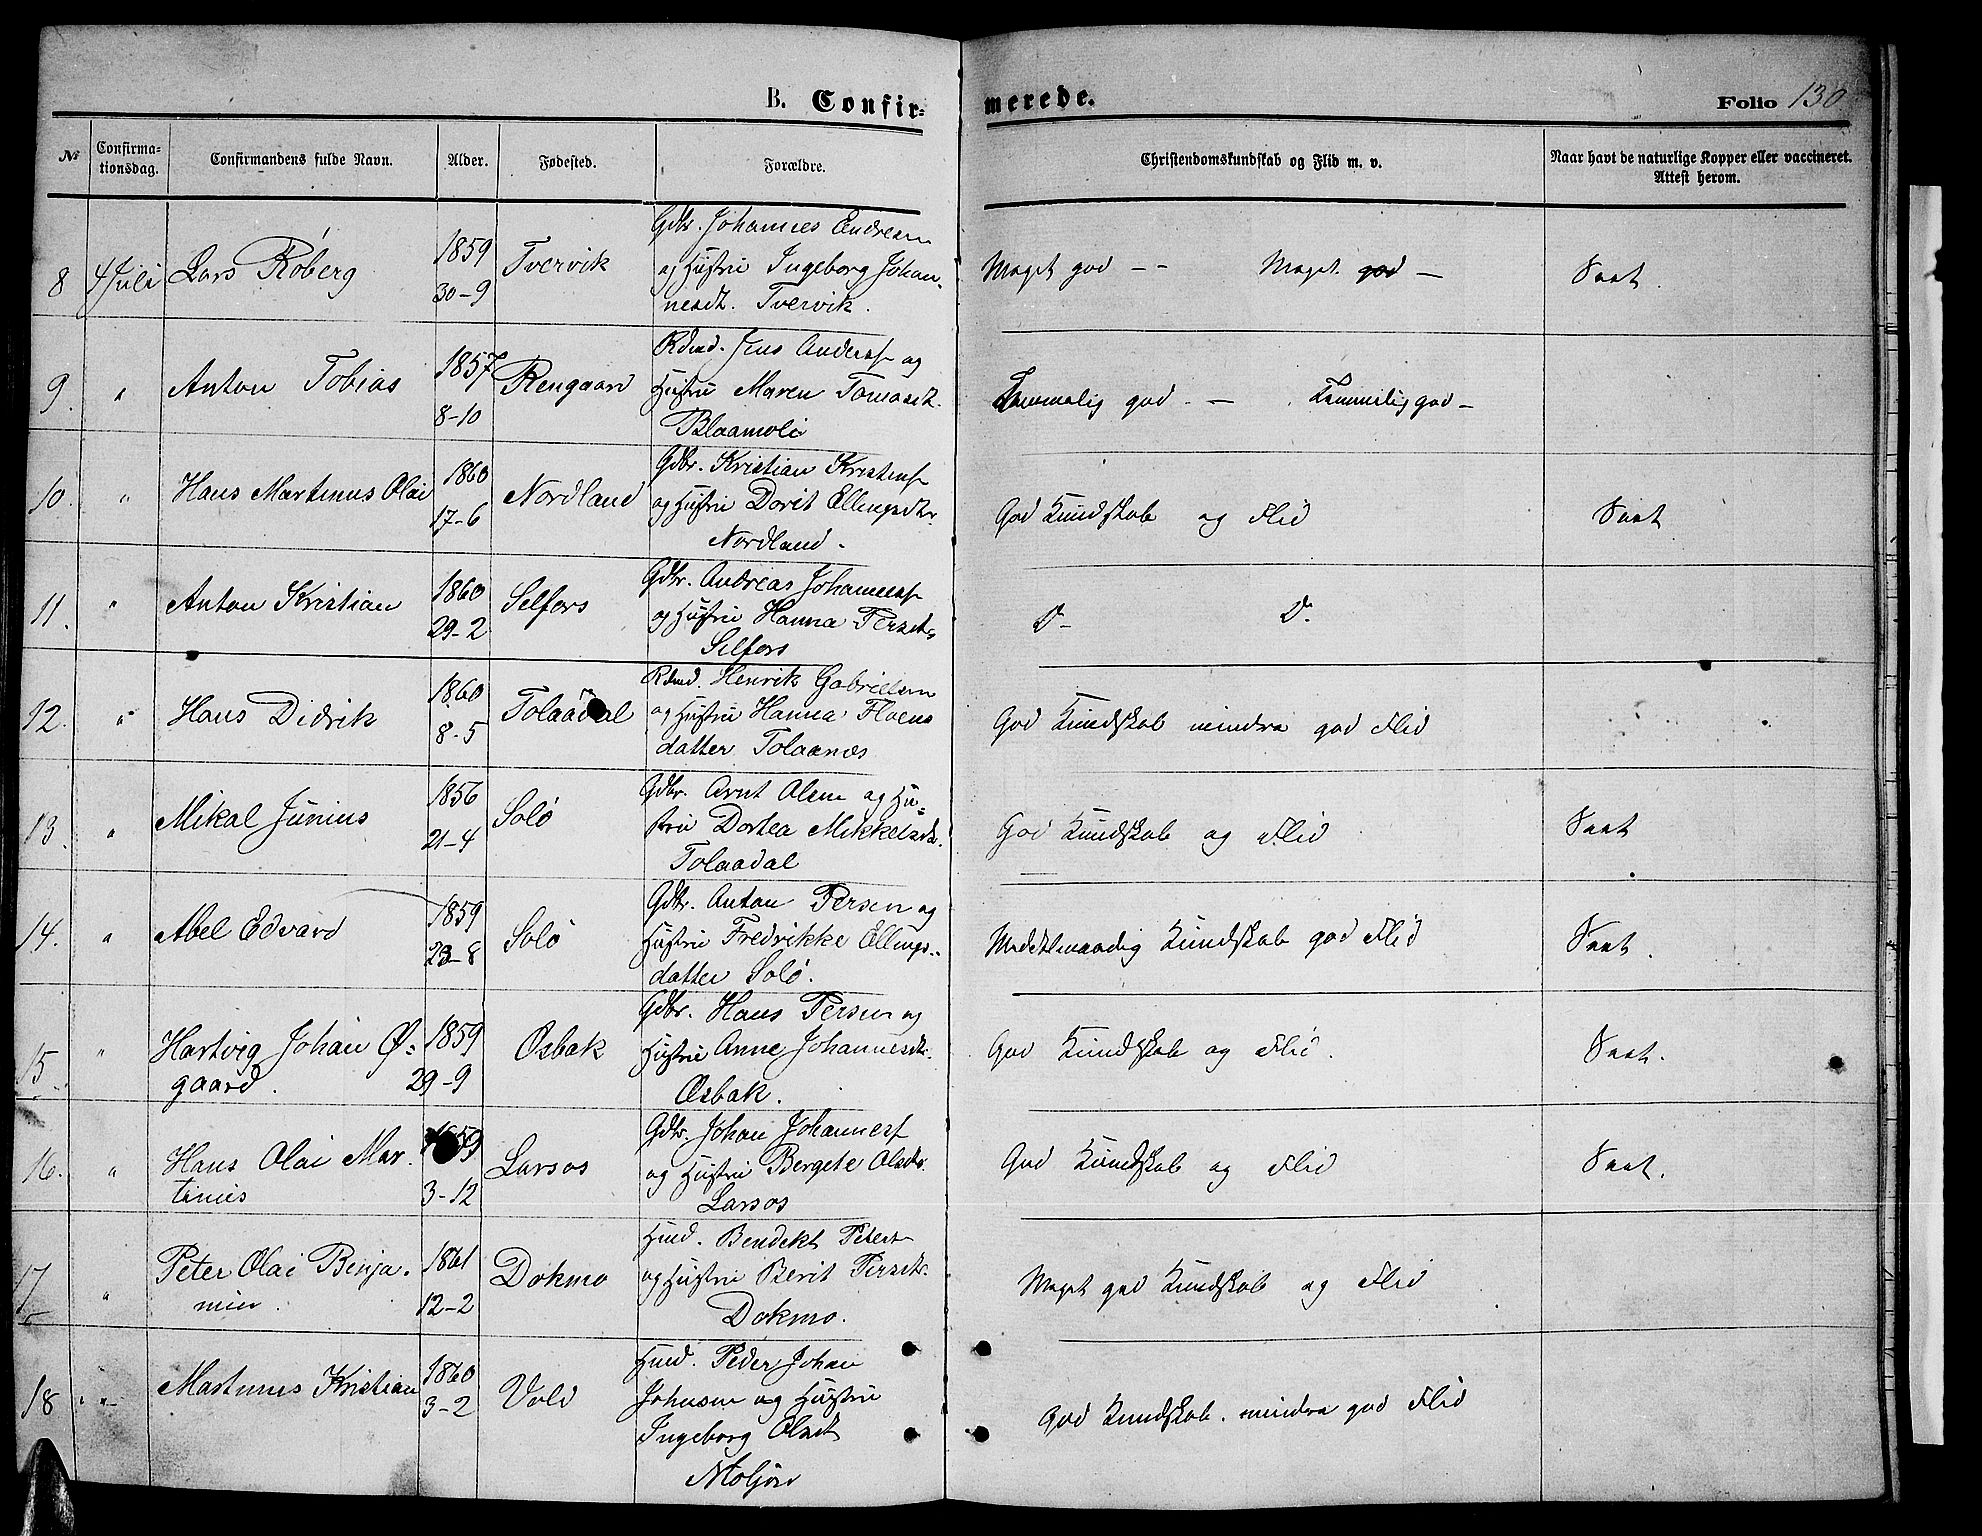 B. Confir-
merede.
Folio 130
№
Confirma-
tionsdag.
Confirmandens fulde Navn.
Alder.
Fødested.
Forældre.
Christendomskundskab og Flid m. v.
Naar havt de naturlige Kopper eller vaccineret.
Attest herom.
8 4 Juli Lars Røberg 1859 30-9 Tvervik
Gdbr. Johannes Andresen
og Hustru Ingeborg Johan-
nesdt. Tvervik.
Meget god - - Meget god - Saat.
9. " Anton Tobias 1857 8-10 Rengaard
Rdmd. Jens Andersf og
Hustru Maren Tomasdt.
Blaamoli
Temmelig god. - Temmelig god -
10. " Hans Martinus Olai 1860 17-6 Nordland
Gdbr. Kristian Kristensf
og Hustru Dorit Ellingsdtr.
Nordland.
God Kundskab og Flid Saat
11. " Anton Kristian 1860 29-2 Selfors
Gdbr. Andreas Johannesf
og Hustru Hanna Persdtr
Selfors
D- D.
12. " Hans Didrik 1860 8-5 Tolaadal
Rdmd. Henrik Gabrielsen
og Hustru Hanna Floens
datter Tolaanæs
God Kundskab mindre god Flid
13. " Mikal Junius 1856 21-4 Solö
Gdbr. Arnt Olsen og Hu-
stru Dortea Mikkelsdtr.
Tolaadal
God Kundskab og Flid Saat
14. " Abel Edvard 1859 23-8 Solö
Gdbr. Anton Persen og
Hustru Fredrikke Ellings-
datter Solö.
Middelmaadig Kundskab god Flid Saat.
15. " Hartvig Johan Ø-
gaard. 1859 29-9 Osbak
Gdbr. Hans Persen og
Hustru Anne Johannesdtr.
Osbak.
God Kundskab og Flid. Saat.
16. " Hans Olai Mar-
tinus 1859 3-12 Larsos
Gdbr. Johan Johannesf
og Hustru Bergete Olsdtr.
Larsos
God Kundskab og Flid Saat.
17 " Peter Olai Benja-
min. 1861 12-2 Dokmo
Hmd. Bendekt Petersf
og Hustru Berit Persdtr.
Dokmo.
Meget god Kundskab og Flid
18 " Martinus Kristian 1860 3-2 Vold
Hmd. Peder Johan
Johnsen og Hustru
Ingeborg Olsdt
Moljord
God Kundskab. mindre god Flid